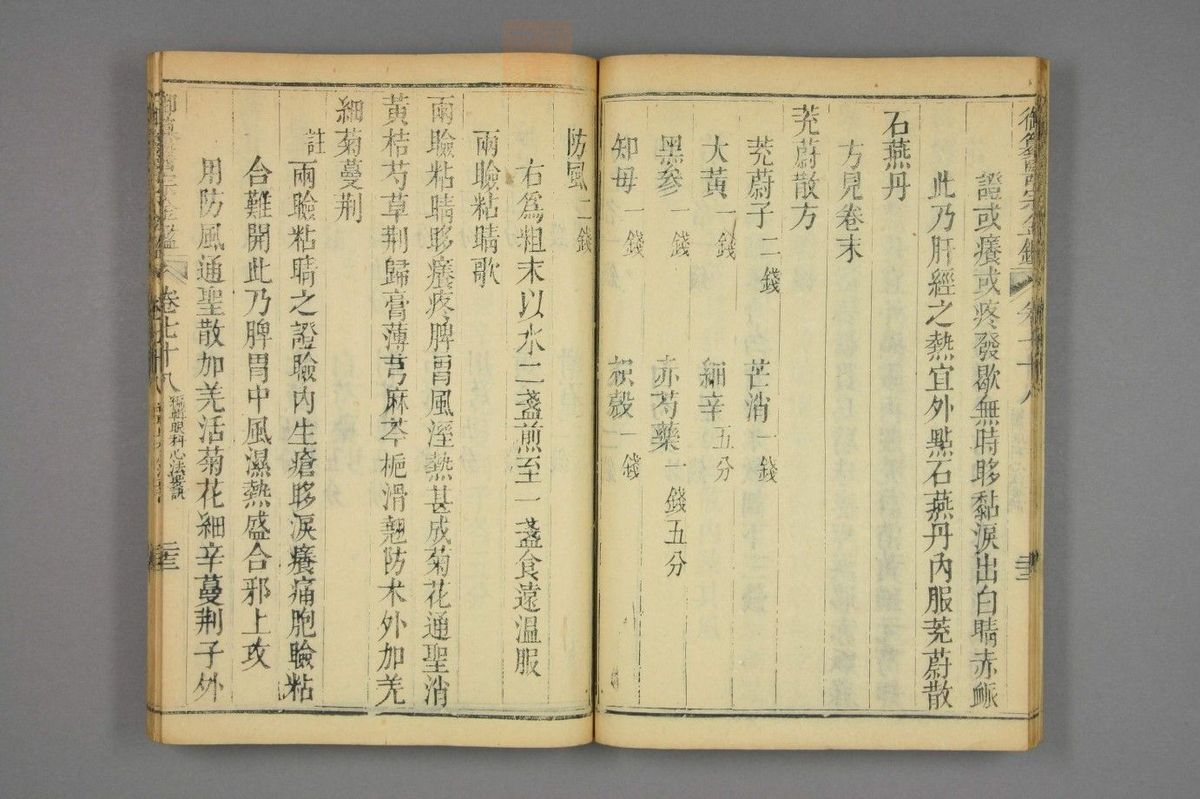 御纂醫宗金鑑
證或癢或疼發歇無時眵黏淚出白睛赤䘑
此乃肝經之熱宜外點石燕丹內服茺蔚散
石燕丹
方見卷末
茺蔚散方
茺蔚子二錢 芒消一錢
大黃一錢 細辛五分
黑參一錢 赤芍藥一錢五分
知母一錢 枳殼一錢
防風二錢
右爲粗末以水二盞煎至一盞食遠溫服
兩瞼粘睛歌
兩瞼粘睛眵癢疼脾胃風溼熱甚成菊花通聖消
黃桔芍草荆歸膏薄芎麻芩梔滑翹防术外加羌
細菊蔓荆
註 兩瞼粘睛之證瞼內生瘡眵淚癢痛胞瞼粘
合難開此乃脾胃中風濕熱盛合邪上攻
用防風通聖散加羌活菊花細辛蔓荆子外
卷七十八 編輯眼科心法要訣